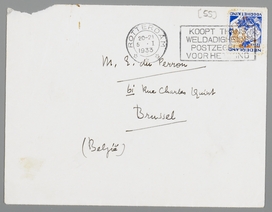 (55)
ROTTERDAM
1933
KOOPT
WELDADIGHEIDS
POSTZEGELS
VOOR HET KIND
NEDERLAND
M. E. du Perron
61 Rue Charles Quint
Brussel
(België)